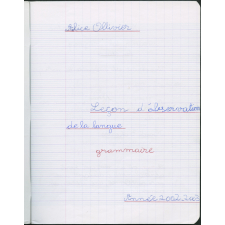 Alice Ollivier
Leçon d'observation
de la langue
grammaire
Année 2002.2003